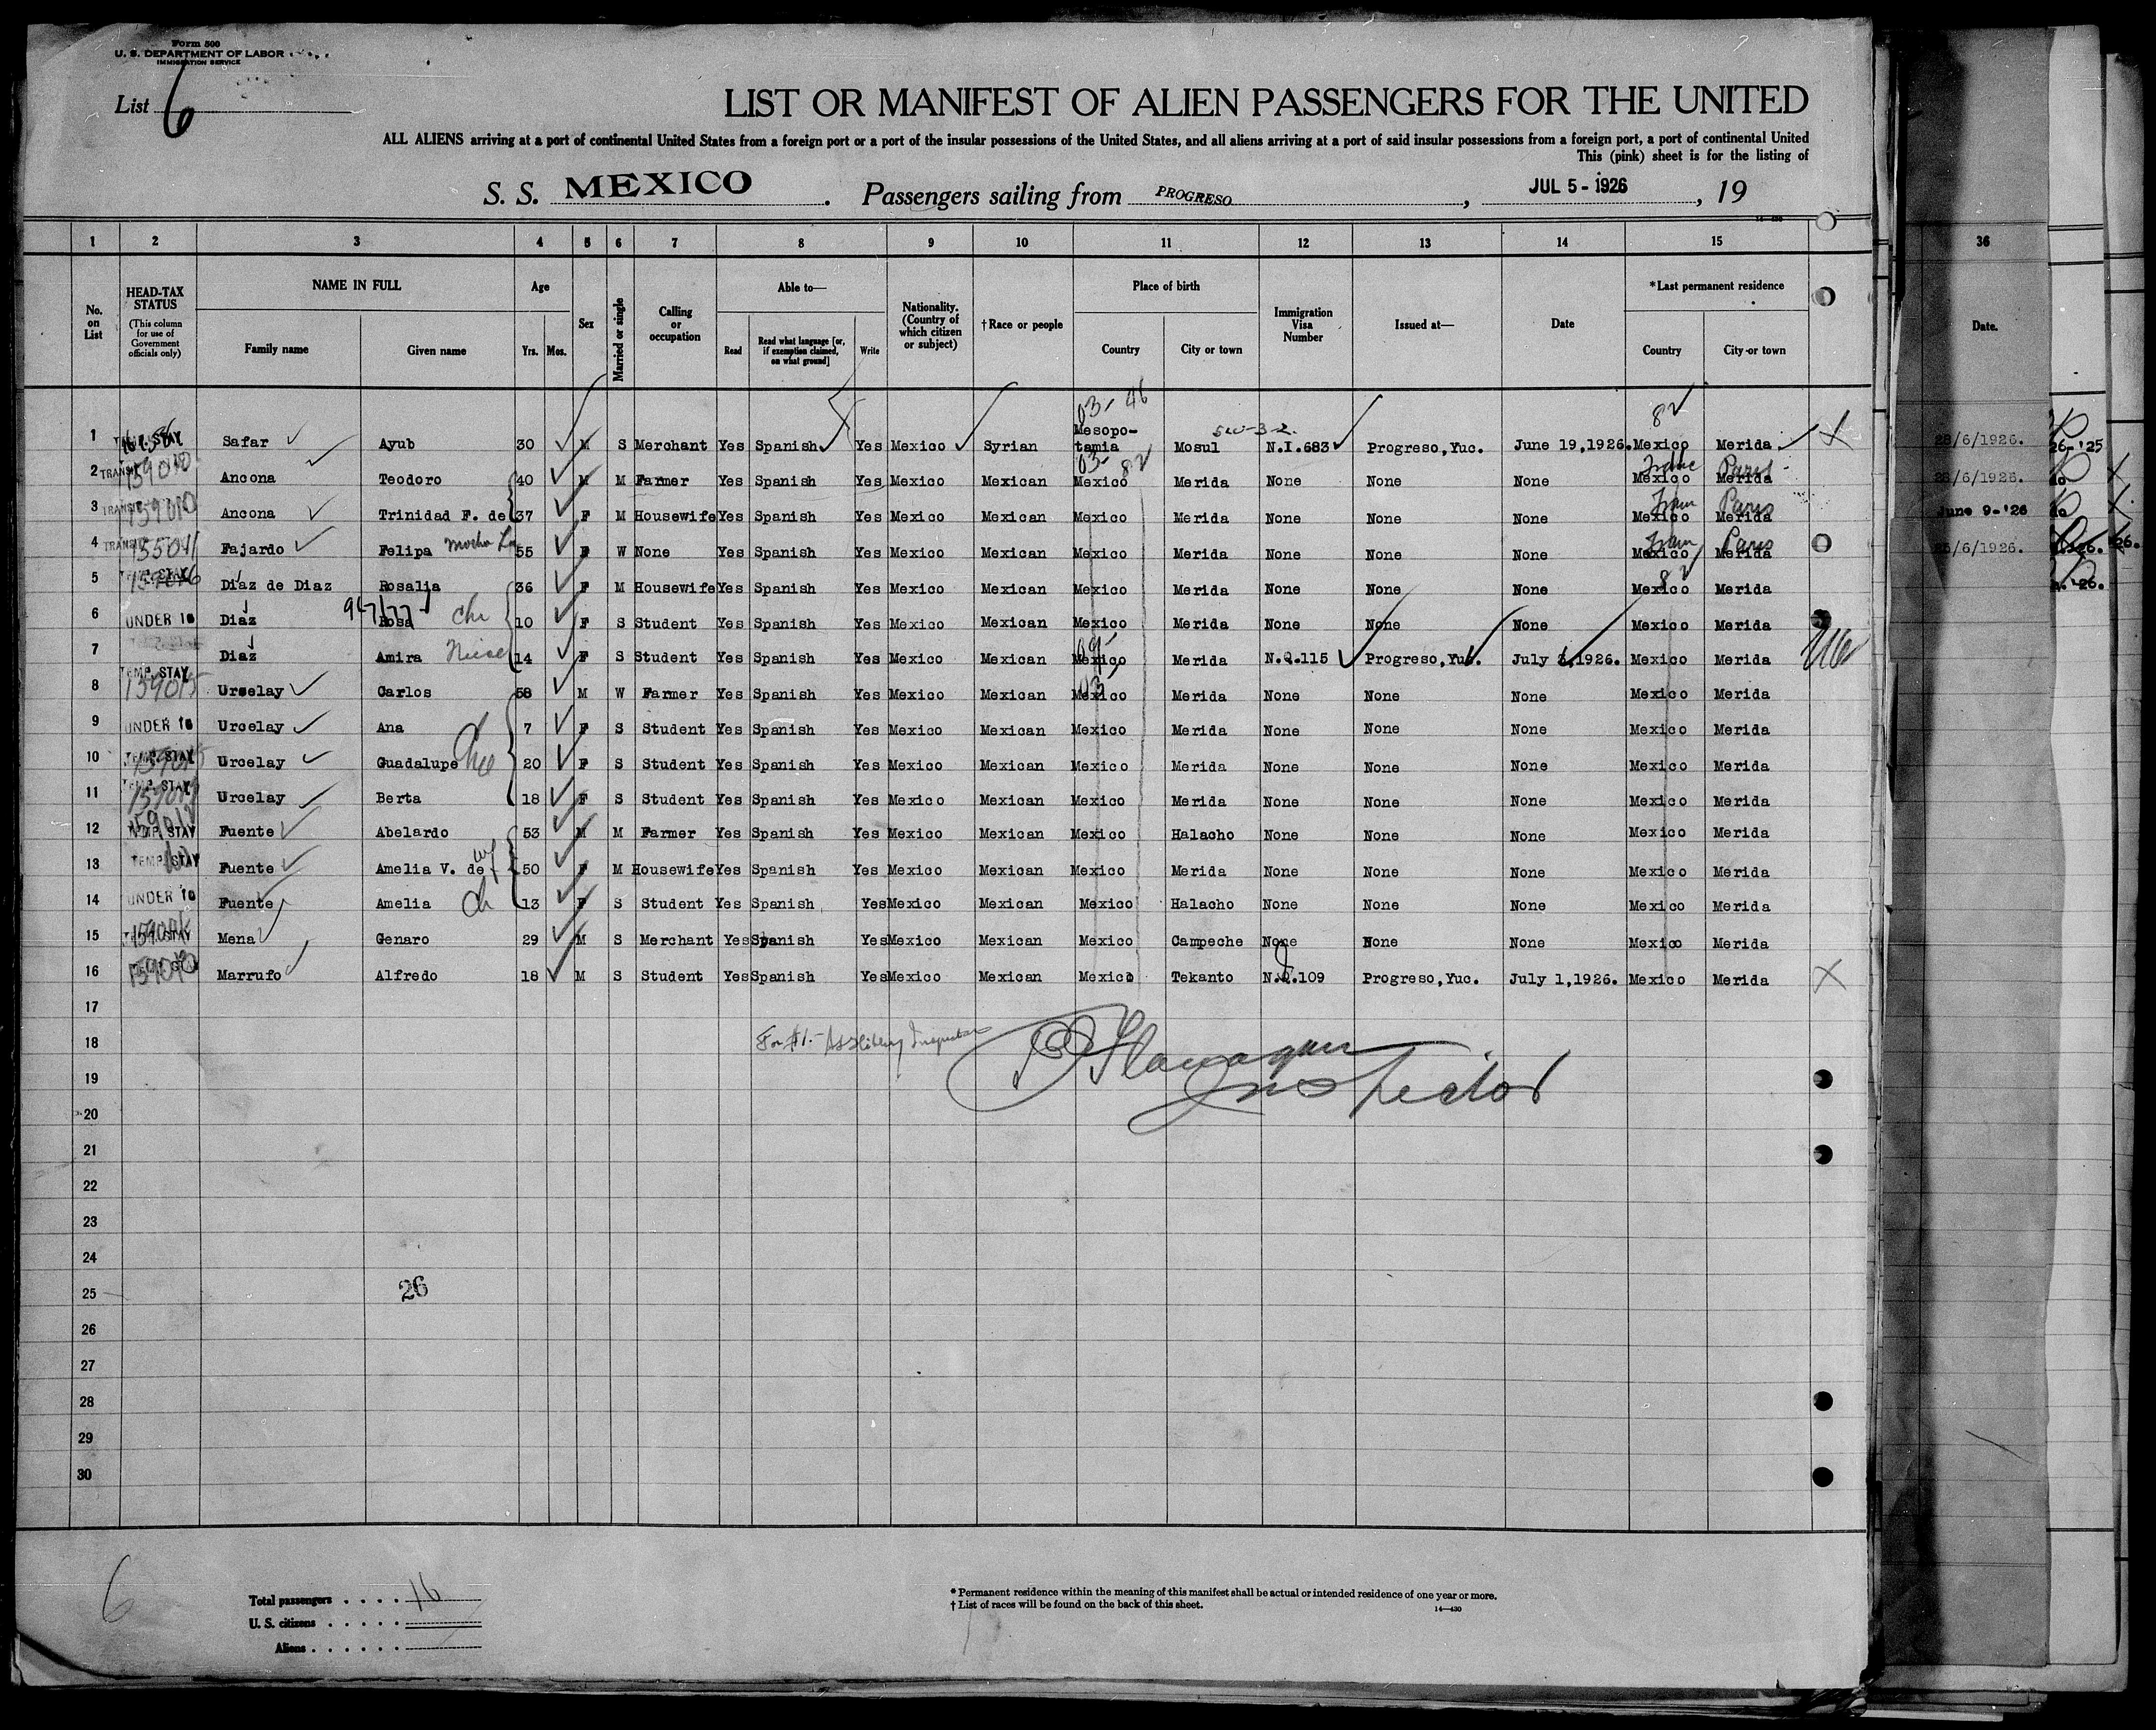 Form 500
U. S. DEPARTMENT OF LABOR
IMMIGRATION SERVICE
List 6
LIST OR MANIFEST OF ALIEN PASSENGERS FOR THE UNITED
ALL ALIENS arriving at a port of continental United States from a foreign port or a port of the insular possessions of the United States, and all aliens arriving at a port of said insular possessions from a foreign port, a port of continental United
This (pink) sheet is for the listing of
S. S. MEXICO. Passengers sailing from PROGRESO, JUL 5 - 1926, 19
1 2 3 4 5 6 7 8 9 10 11 12 13 14 15 36
No. on List
HEAD-TAX STATUS (This column for use of Government officials only)
NAME IN FULL Family name Given name
Age Yrs. Mos.
Sex
Married or single
Calling or occupation
Able to— Read Read what language [or, if exemption claimed, on what ground] Write
Nationality. (Country of which citizen or subject)
†Race or people
Place of birth Country City or town
Immigration Visa Number
Issued at—
Date
*Last permanent residence Country City or town
Date.
03- 46 8
1 TEMP. STAY Safar Ayub 30 M S Merchant Yes Spanish Yes Mexico Syrian Mesopotamia Mosul N.I.683 Progreso,Yuc. June 19,1926. Mexico Merida 28/6/1926. 26-'25
2 TRANSIT 159010 Ancona Teodoro 40 M M Farmer Yes Spanish Yes Mexico Mexican Mexico Merida None None None Mexico Merida Paris 28/6/1926.
3 TRANSIT 159010 Ancona Trinidad F. de 37 F M Housewife Yes Spanish Yes Mexico Mexican Mexico Merida None None None Mexico Merida Paris June 9-'26
4 TRANSIT Fajardo Felipa 55 F W None Yes Spanish Yes Mexico Mexican Mexico Merida None None None Mexico Merida Paris 25/6/1926.
5 TEMP. STAY Diaz de Diaz Rosalia 36 F M Housewife Yes Spanish Yes Mexico Mexican Mexico Merida None None None Mexico Merida
6 UNDER 16 Diaz Rosa Ch 10 F S Student Yes Spanish Yes Mexico Mexican Mexico Merida None None None Mexico Merida
7 Diaz Amira Niece 14 F S Student Yes Spanish Yes Mexico Mexican Mexico Merida N.Q.115 Progreso,Yuc. July 2,1926. Mexico Merida
8 TEMP. STAY 159015 Urselay Carlos 58 M W Farmer Yes Spanish Yes Mexico Mexican Mexico Merida None None None Mexico Merida
9 UNDER 16 Urcelay Ana 7 F S Student Yes Spanish Yes Mexico Mexican Mexico Merida None None None Mexico Merida
10 TEMP. STAY Urcelay Guadalupe 20 F S Student Yes Spanish Yes Mexico Mexican Mexico Merida None None None Mexico Merida
11 TEMP. STAY Urcelay Berta 18 F S Student Yes Spanish Yes Mexico Mexican Mexico Merida None None None Mexico Merida
12 TEMP. STAY Fuente Abelardo 53 M M Farmer Yes Spanish Yes Mexico Mexican Mexico Halacho None None None Mexico Merida
13 TEMP. STAY Fuente Amelia V. de wf 50 F M Housewife Yes Spanish Yes Mexico Mexican Mexico Merida None None None Mexico Merida
14 UNDER 16 Fuente Amelia Ch 13 F S Student Yes Spanish Yes Mexico Mexican Mexico Halacho None None None Mexico Merida
15 TEMP. STAY Mena Genaro 29 M S Merchant Yes Spanish Yes Mexico Mexican Mexico Campeche None None None Mexico Merida
16 Marrufo Alfredo 18 M S Student Yes Spanish Yes Mexico Mexican Mexico Tekanto N.Q.109 Progreso,Yuc. July 1,1926. Mexico Merida
17
18
19 Inspector
20
21
22
23
24
25 26
26
27
28
29
30
6
Total passengers . . . . 16
U. S. citizens . . . . .
Aliens . . . . . .
* Permanent residence within the meaning of this manifest shall be actual or intended residence of one year or more.
† List of races will be found on the back of this sheet.
14—430